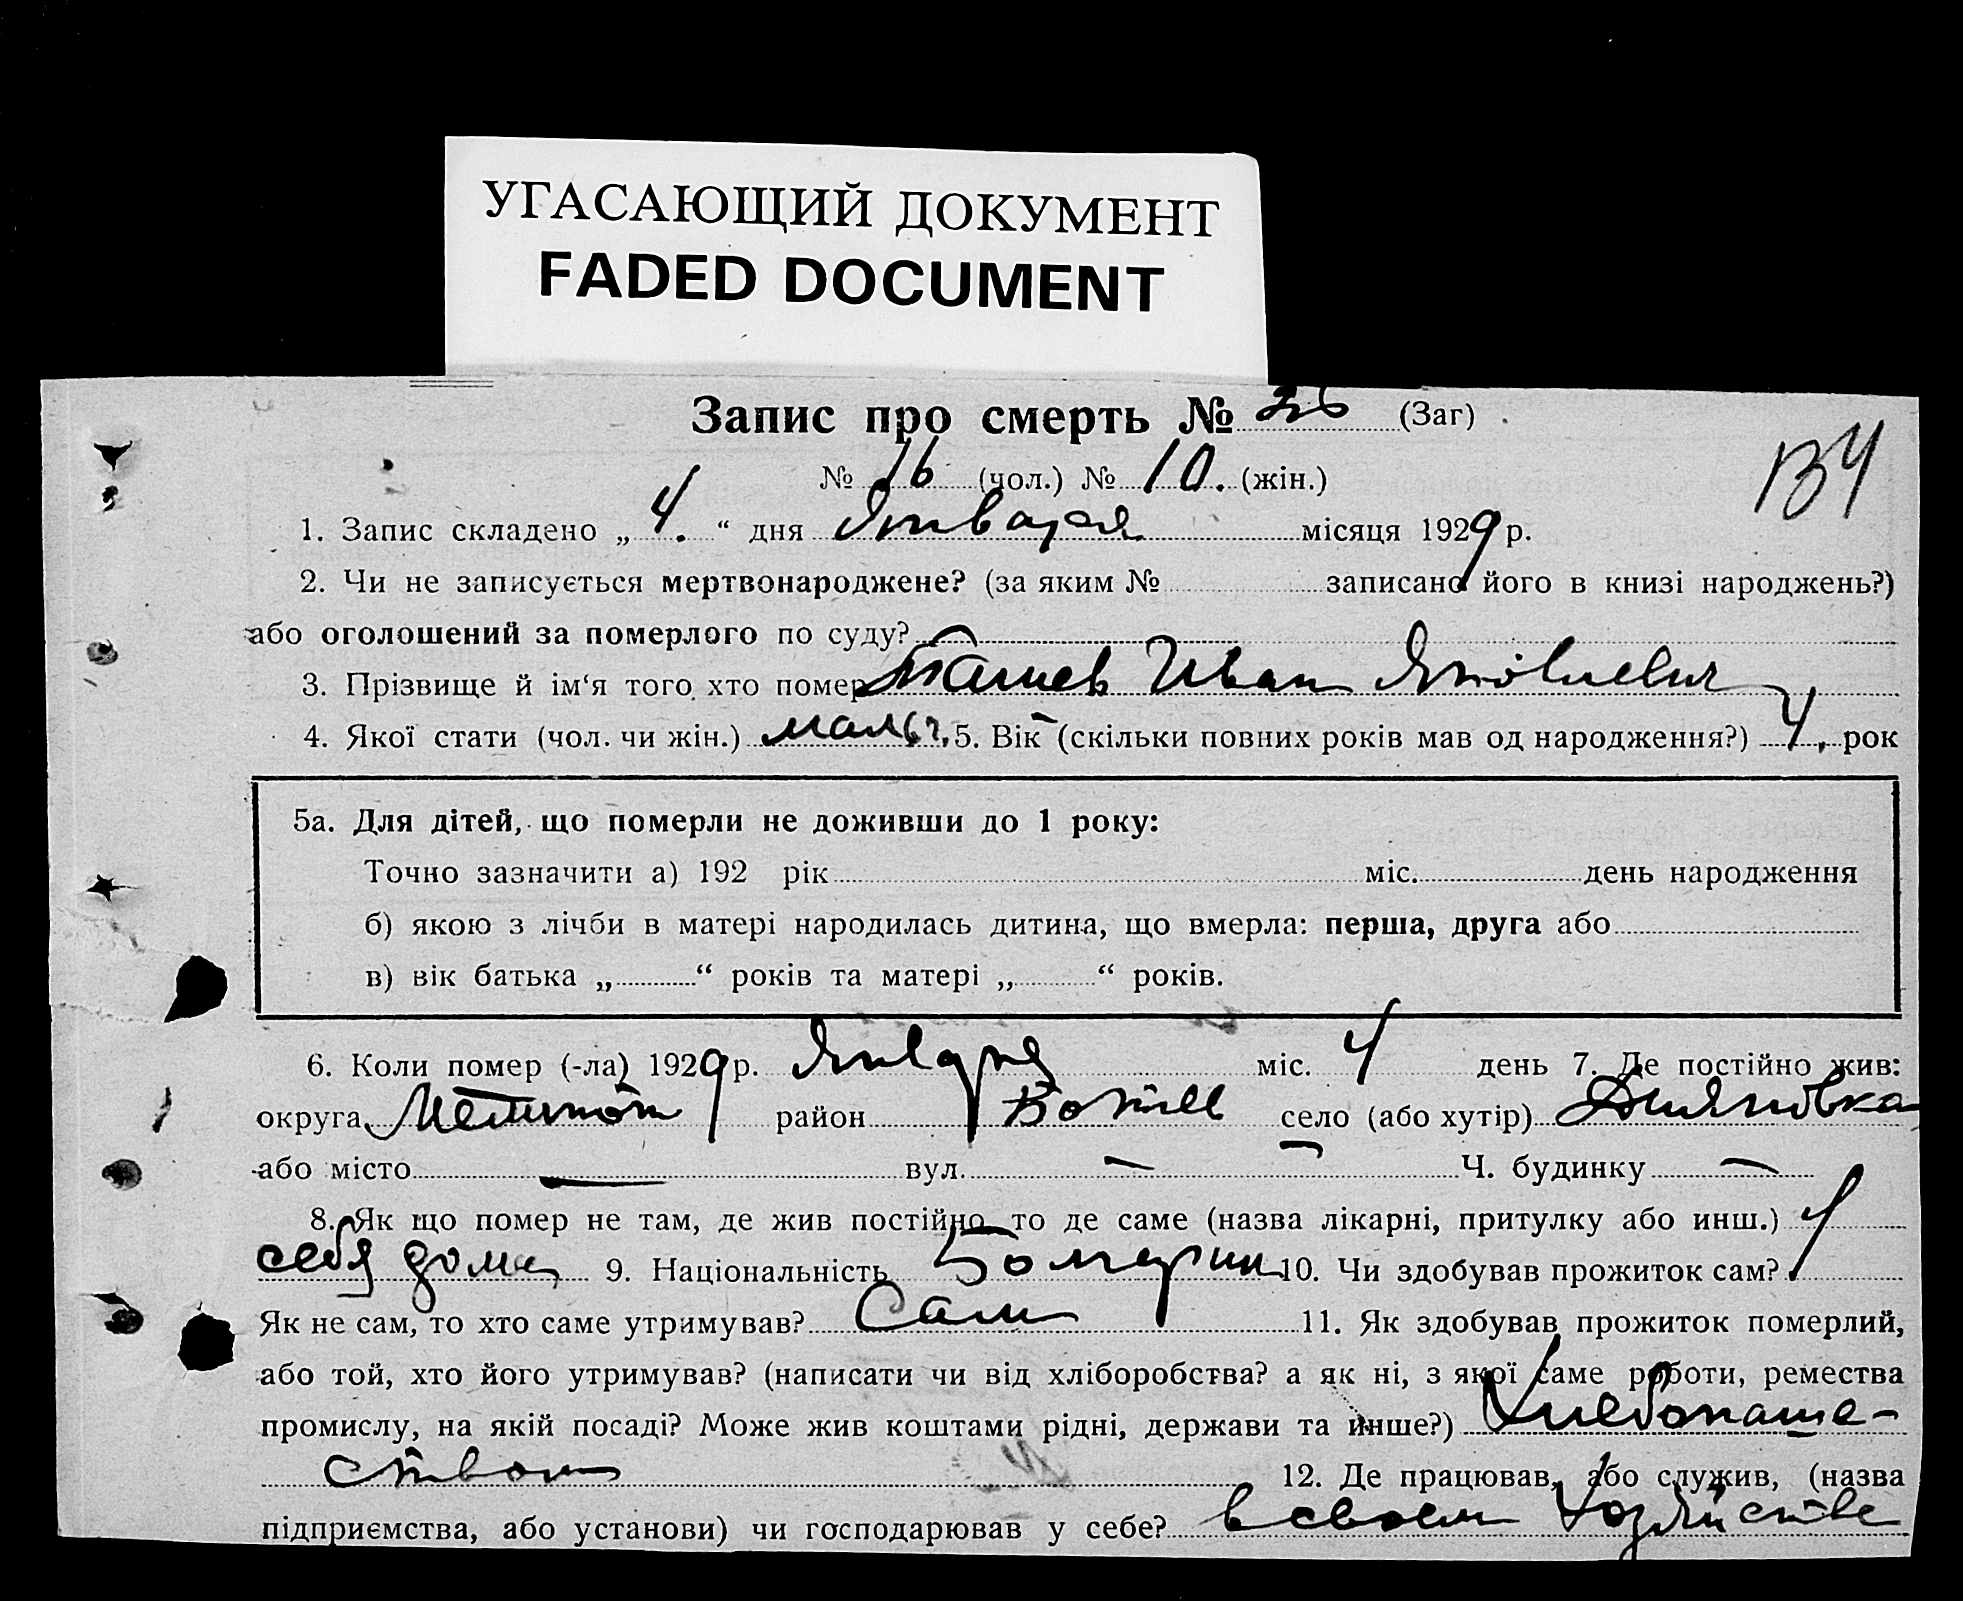 УГАСАЮЩИЙ ДОКУМЕНТ
FADED DOCUMENT
Запис про смерть № 26 (Заг)
134
№ 16 (чол.) № 10. (жін.)
1. Запис складено „ 4. “ дня Января місяця 1929 р.
2. Чи не записується мертвонароджене? (за яким № записано його в книзі народжень?)
або оголошений за померлого по суду? —
3. Прізвище й ім‘я того хто помер Ташев Иван Яковлевич
4. Якої стати (чол. чи жін.) 5. Вік (скільки повних років мав од народження?) 4. рок
5а. Для дітей, що померли не доживши до 1 року:
Точно зазначити а) 192 рік міс. день народження
б) якою з лічби в матері народилась дитина, що вмерла: перша, друга або
в) вік батька „ “ років та матері „ “ років.
6. Коли помер (-ла) 1929 р. Января міс. 4 день 7. Де постійно жив:
округа Мелитоп район село (або хутір)
або місто — вул. — Ч. будинку —
8. Як що помер не там, де жив постійно то де саме (назва лікарні, притулку або инш.) У
себя дома 9. Національність Болгарин 10. Чи здобував прожиток сам?
Як не сам, то хто саме утримував? Сам 11. Як здобував прожиток померлий,
або той, хто його утримував? (написати чи від хліборобства? а як ні, з якої саме роботи, ремества
промислу, на якій посаді? Може жив коштами рідні, держави та инше?) Хлебопаше-
ством 12. Де працював, або служив, (назва
підприємства, або установи) чи господарював у себе? в своем хозяйстве